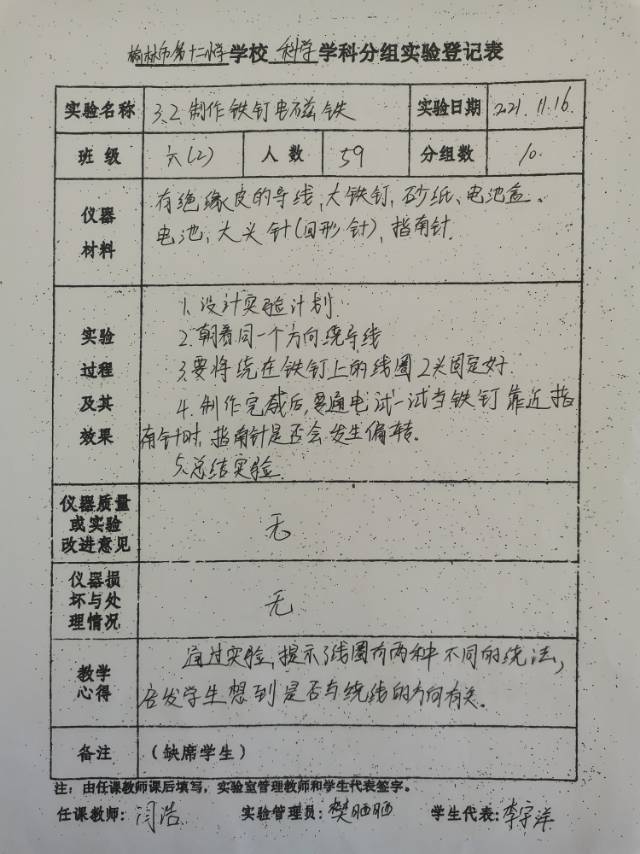 榆林市第十二小学学校 科学学科分组实验登记表
实验名称 3.2 制作铁钉电磁铁 实验日期 2021.11.16
班 级 六(2) 人 数 59 分组数 10
仪器材料 有绝缘皮的导线、大铁钉、砂纸、电池盒、
电池、大头针(回形针)、指南针
实验过程及其效果 1. 设计实验计划.
2. 朝着同一个方向绕导线
3. 要将绕在铁钉上的线圈2头固定好.
4. 制作完成后,要通电试一试当铁钉靠近指
南针时,指南针是否会发生偏转。
5. 总结实验
仪器质量或实验改进意见 无
仪器损坏与处理情况 无
教学心得 通过实验,提示了线圈有两种不同的绕法,
启发学生想到是否与绕线的方向有关。
备注 (缺席学生)
注:由任课教师课后填写,实验室管理教师和学生代表签字。
任课教师:闫浩 实验管理员:樊晒晒 学生代表:李宇洋